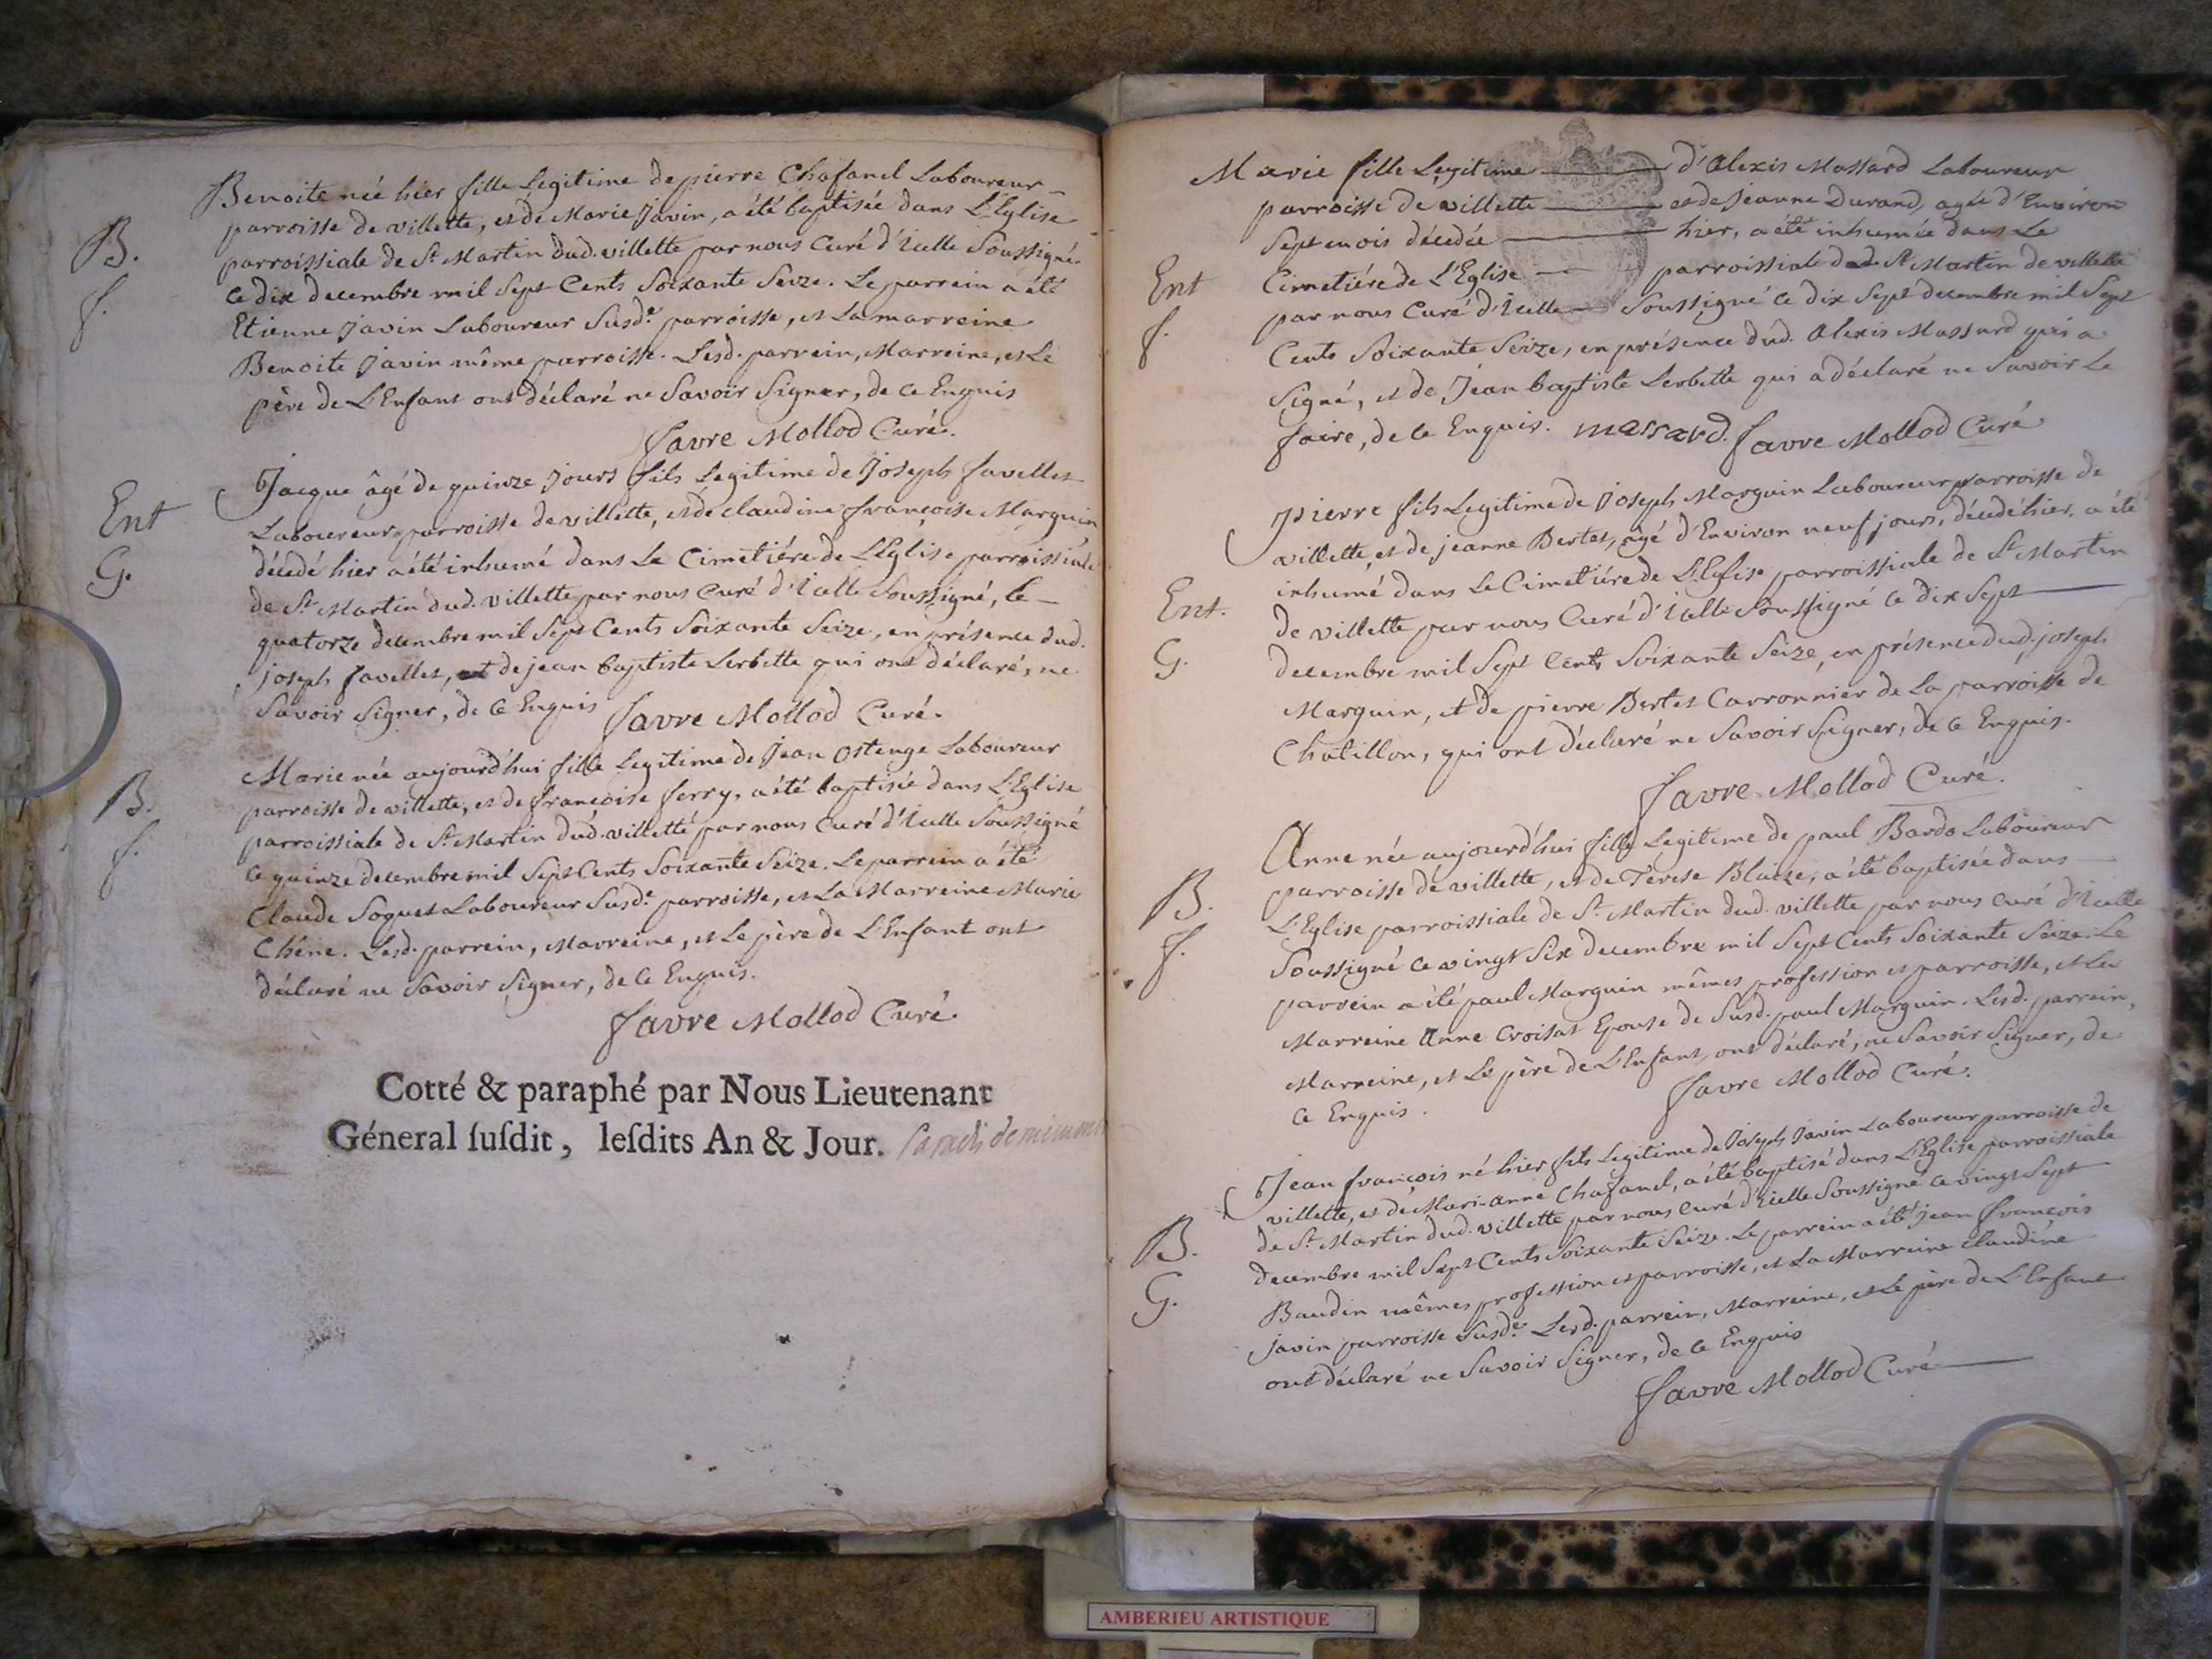 Benoite née hier fille Legitime de pierre Chafanel Laboureur
parroisse de villette, et de Marie Javin, a été baptisée dans L'Eglise
B.
parroissiale de St Martin dud. villette par nous Curé d'Icelle Soussigné
f.
ce dix decembre mil Sept Cents Soixante Seize. Le parrein a été
Etienne Javin Laboureur Susde parroisse, et La marreine
Benoite Javin même parroisse. Lesd. parrein, Marreine, et Le
père de L'Enfant ont déclaré ne Savoir Signer, de ce Enquis
favre Mollod Curé.
Jacque âgé de quinze Jours fils Legitime de Joseph favellet
Ent
Laboureur parroisse de villette, et de claudine françoise Marguin
G.
décedé hier a été inhumé dans Le Cimetiére de L'Eglise parroissiale
de St Martin dud. villette par nous Curé d'Icelle Soussigné, le
quatorze decembre mil Sept Cents Soixante Seize, en présence dud.
joseph favellet, et de jean baptiste Lerbette qui ont déclaré, ne
Savoir Signer, de ce Enquis
favre Mollod Curé.
Marie née aujourd'hui fille Legitime de Jean Ostenge Laboureur
B.
parroisse de villette, et de françoise ferry, a été baptisée dans L'Eglise
f.
parroissiale de St Martin dud. villette par nous Curé d'Icelle Soussigné
ce quinze decembre mil Sept Cents Soixante Seize. Le parrein a été
Claude Soquet Laboureur Susde parroisse, et La Marreine Marie
Chêne. Lesd. parrein, Marreine, et Le père de L'Enfant ont
déclaré ne Savoir Signer, de ce Enquis.
favre Mollod Curé.
Cotté & paraphé par Nous Lieutenant
Géneral ſuſdit, leſdits An & Jour.
Marie fille Legitime d'Alexis Massard Laboureur
parroisse de villette et de Jeanne Durand, agée d'Environ
Sept mois décedée hier, a été inhumée dans Le
Ent
Cimetiére de L'Eglise parroissiale de St Martin de villette
f.
par nous Curé d'Icelle Soussigné ce dix Sept decembre mil Sept
Cents Soixante Seize, en présence dud. Alexis Massard qui a
Signé, et de Jean baptiste Lerbette qui a déclaré ne Savoir Le
faire, de ce Enquis. massard. favre Mollod Curé
pierre fils Legitime de Joseph Marguin Laboureur parroisse de
villette, et de jeanne Bertet, âgé d'Environ neuf jours, décedé hier, a été
Ent.
inhumé dans Le Cimetiére de L'Eglise parroissiale de St Martin
G.
de villette par nous Curé d'Icelle Soussigné ce dix Sept
decembre mil Sept Cents Soixante Seize, en présence dud. joseph
Marguin, et de pierre Bertet Carronnier de La parroisse de
Chatillon, qui ont déclaré ne Savoir Signer, de ce Enquis.
favre Mollod Curé.
Anne née aujourd'hui fille Legitime de paul Bardo Laboureur
B.
parroisse de villette, et de Terese Blaize, a été baptisée dans
f.
L'Eglise parroissiale de St Martin dud. villette par nous Curé d'Icelle
Soussigné ce vingt Six decembre mil Sept Cents Soixante Seize. Le
parrein a été paul Marguin mêmes profession et parroisse, et La
Marreine Anne Croisat Epouse de Susd. paul Marguin. Lesd. parrein,
Marreine, et Le père de L'Enfant, ont déclaré, ne Savoir Signer, de
ce Enquis.
favre Mollod Curé.
Jean françois né hier fils Legitime de Joseph Javin Laboureur parroisse de
villette, et de Mari-anne Chafanel, a été baptisé dans L'Eglise parroissiale
B.
de St Martin dud. villette par nous Curé d'Icelle Soussigné ce vingt Sept
G.
decembre mil Sept Cents Soixante Seize. Le parrein a été Jean françois
Baudin mêmes profession et parroisse, et La Marreine claudine
javin parroisse Susde. Lesd. parrein, Marreine, et Le père de L'Enfant
ont déclaré ne Savoir Signer, de ce Enquis
favre Mollod Curé
AMBERIEU ARTISTIQUE